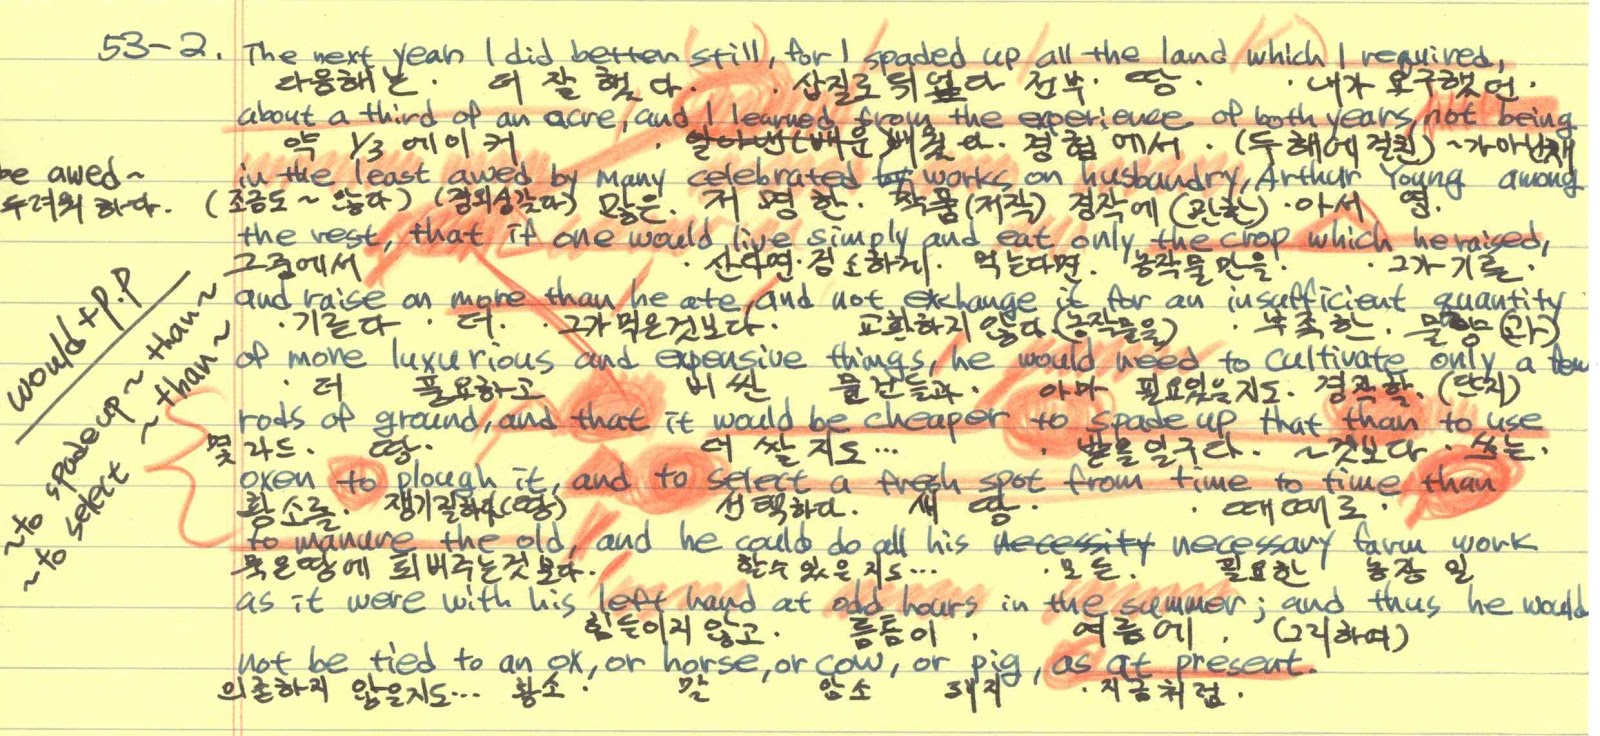 53-2. The next year I did better still, for I spaded up all the land which I required,
다음해는 . 더 잘 했다. . 삽질로 뒤엎다 전부 . 땅 . . 내가 요구했던 .
about a third of an acre, and I learned from the experience of both years, not being
약 1/3 에이커 . 경험에서 . (두 해에 걸친) ~가 아닌채
be awed~ in the least awed by many celebrated works on husbandry, Arthur Young among
두려워 하다. (조금도 ~ 않다) 많은. 저명한. 작품(저작) 경작에 (관한) . 아서 영.
the rest, that if one would live simply and eat only the crop which he raised,
그중에서 . 산다면. 검소하게. 먹는다면. 농작물만을. . 그가 기른.
and raise on more than he ate, and not exchange it for an insufficient quantity
. 기른다 . 더. . 그가 먹은것보다. 교환하지 않다 (농작물을) . 부족한. 물량 (과)
of more luxurious and expensive things, he would need to cultivate only a few
. 더 풍요하고 비싼 물건들과. 아마 필요있을지도. 경작할. (단지)
rods of ground, and that it would be cheaper to spade up that than to use
몇 라드. 땅. 더 쌀지도... . 밭을 일구다. ~것보다. 쓰는.
oxen to plough it, and to select a fresh spot from time to time than
황소를. 쟁기질하다 (땅) 선택하다. 새 땅. . 때때로.
to manure the old, and he could do all his necessity necessary farm work
묵은땅에 퇴비주는것 보다. 할수 있을지도... . 모든. 필요한 농장 일
as it were with his left hand at odd hours in the summer; and thus he would
힘들이지 않고. 틈틈이. 여름에. (그리하여)
not be tied to an ox, or horse, or cow, or pig, as at present.
의존하지 않을지도... 황소. 말 암소 돼지 . 지금처럼.
would + p.p
~to spade up ~ than ~
~to select ~ than ~